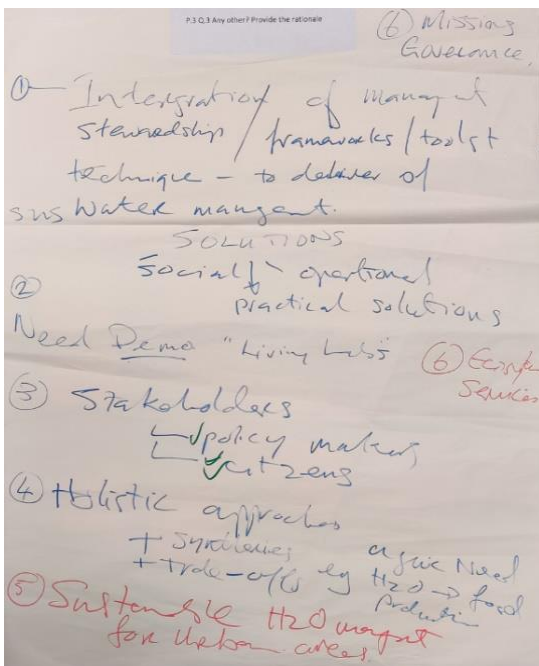 P.3 Q.3 Any other? Provide the rationale
⑥ Missing
Governance,
① Intergration of managt
stewardship / frameworks / tools +
technique – to deliver of
sus Water mangent.
SOLUTIONS
Social & opertional
practical solutions
②
Need Demo "Living Labs"
⑥
Services
③ Stakeholders
policy makers
citzens
④ Holistic approches
+ Synthesies
+ trade-offs eg
Need
H2O → food
Production
⑤ Sustanable H2O mangt
for Urban areas.